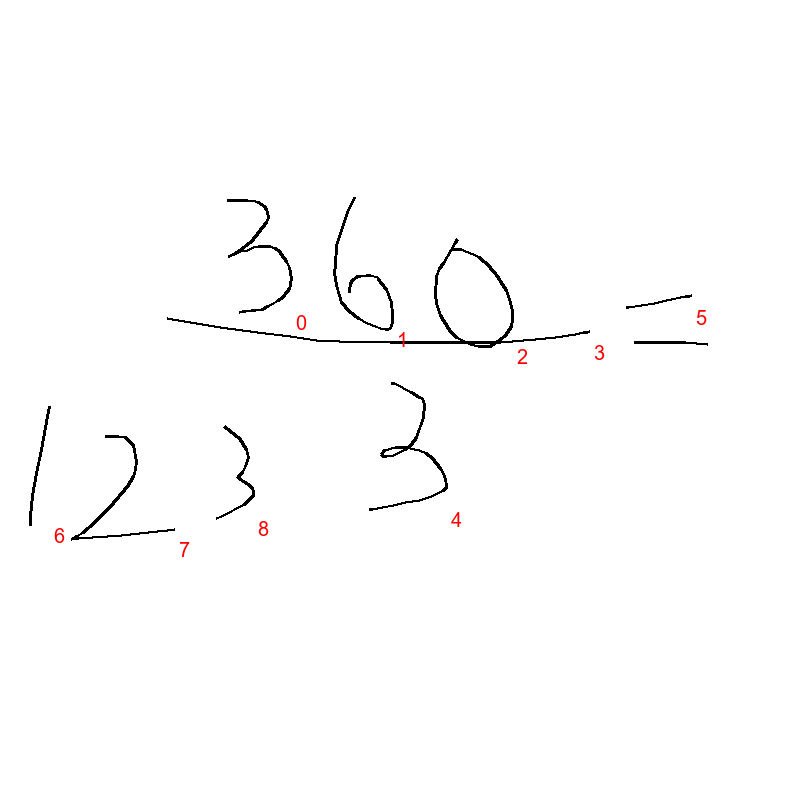 360
0 1 2 3 = 5
123 3
6 7 8 4